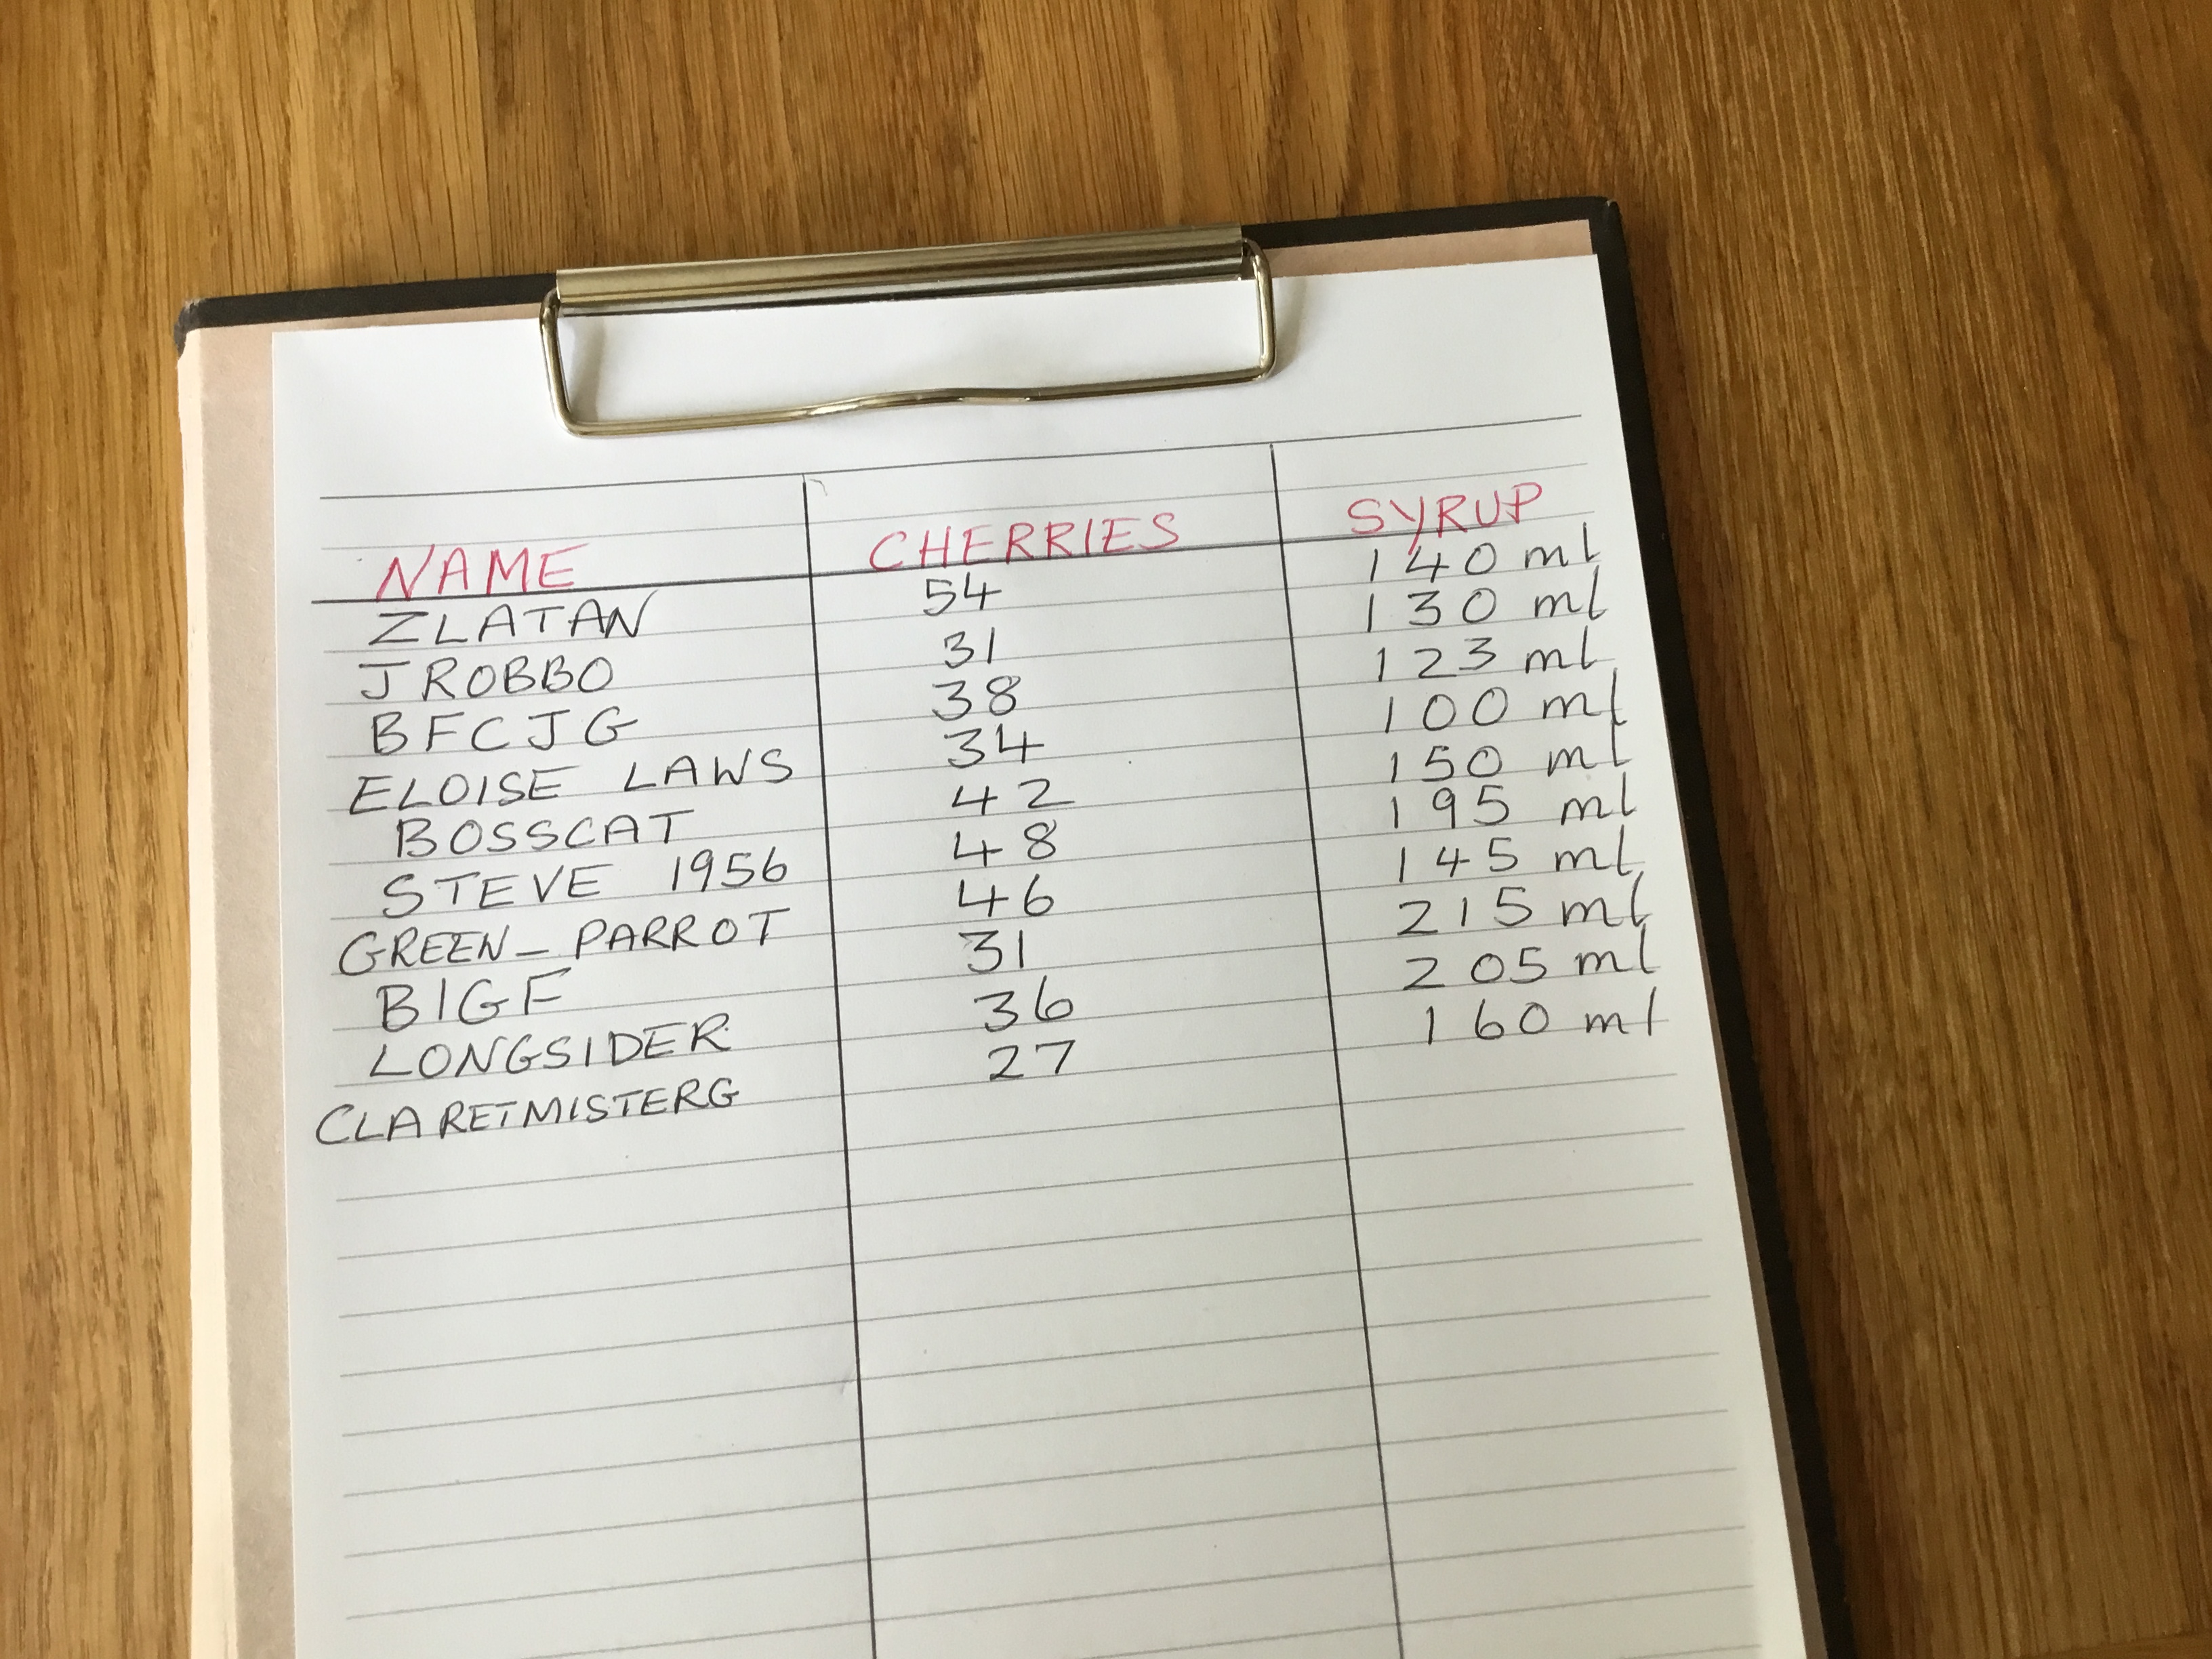 NAME CHERRIES SYRUP
ZLATAN 54 140 ml
JROBBO 31 130 ml
BFCJG 38 123 ml
ELOISE LAWS 34 100 ml
BOSSCAT 42 150 ml
STEVE 1956 48 195 ml
GREEN_PARROT 46 145 ml
BIGF 31 215 ml
LONGSIDER 36 205 ml
CLARETMISTERG 27 160 ml